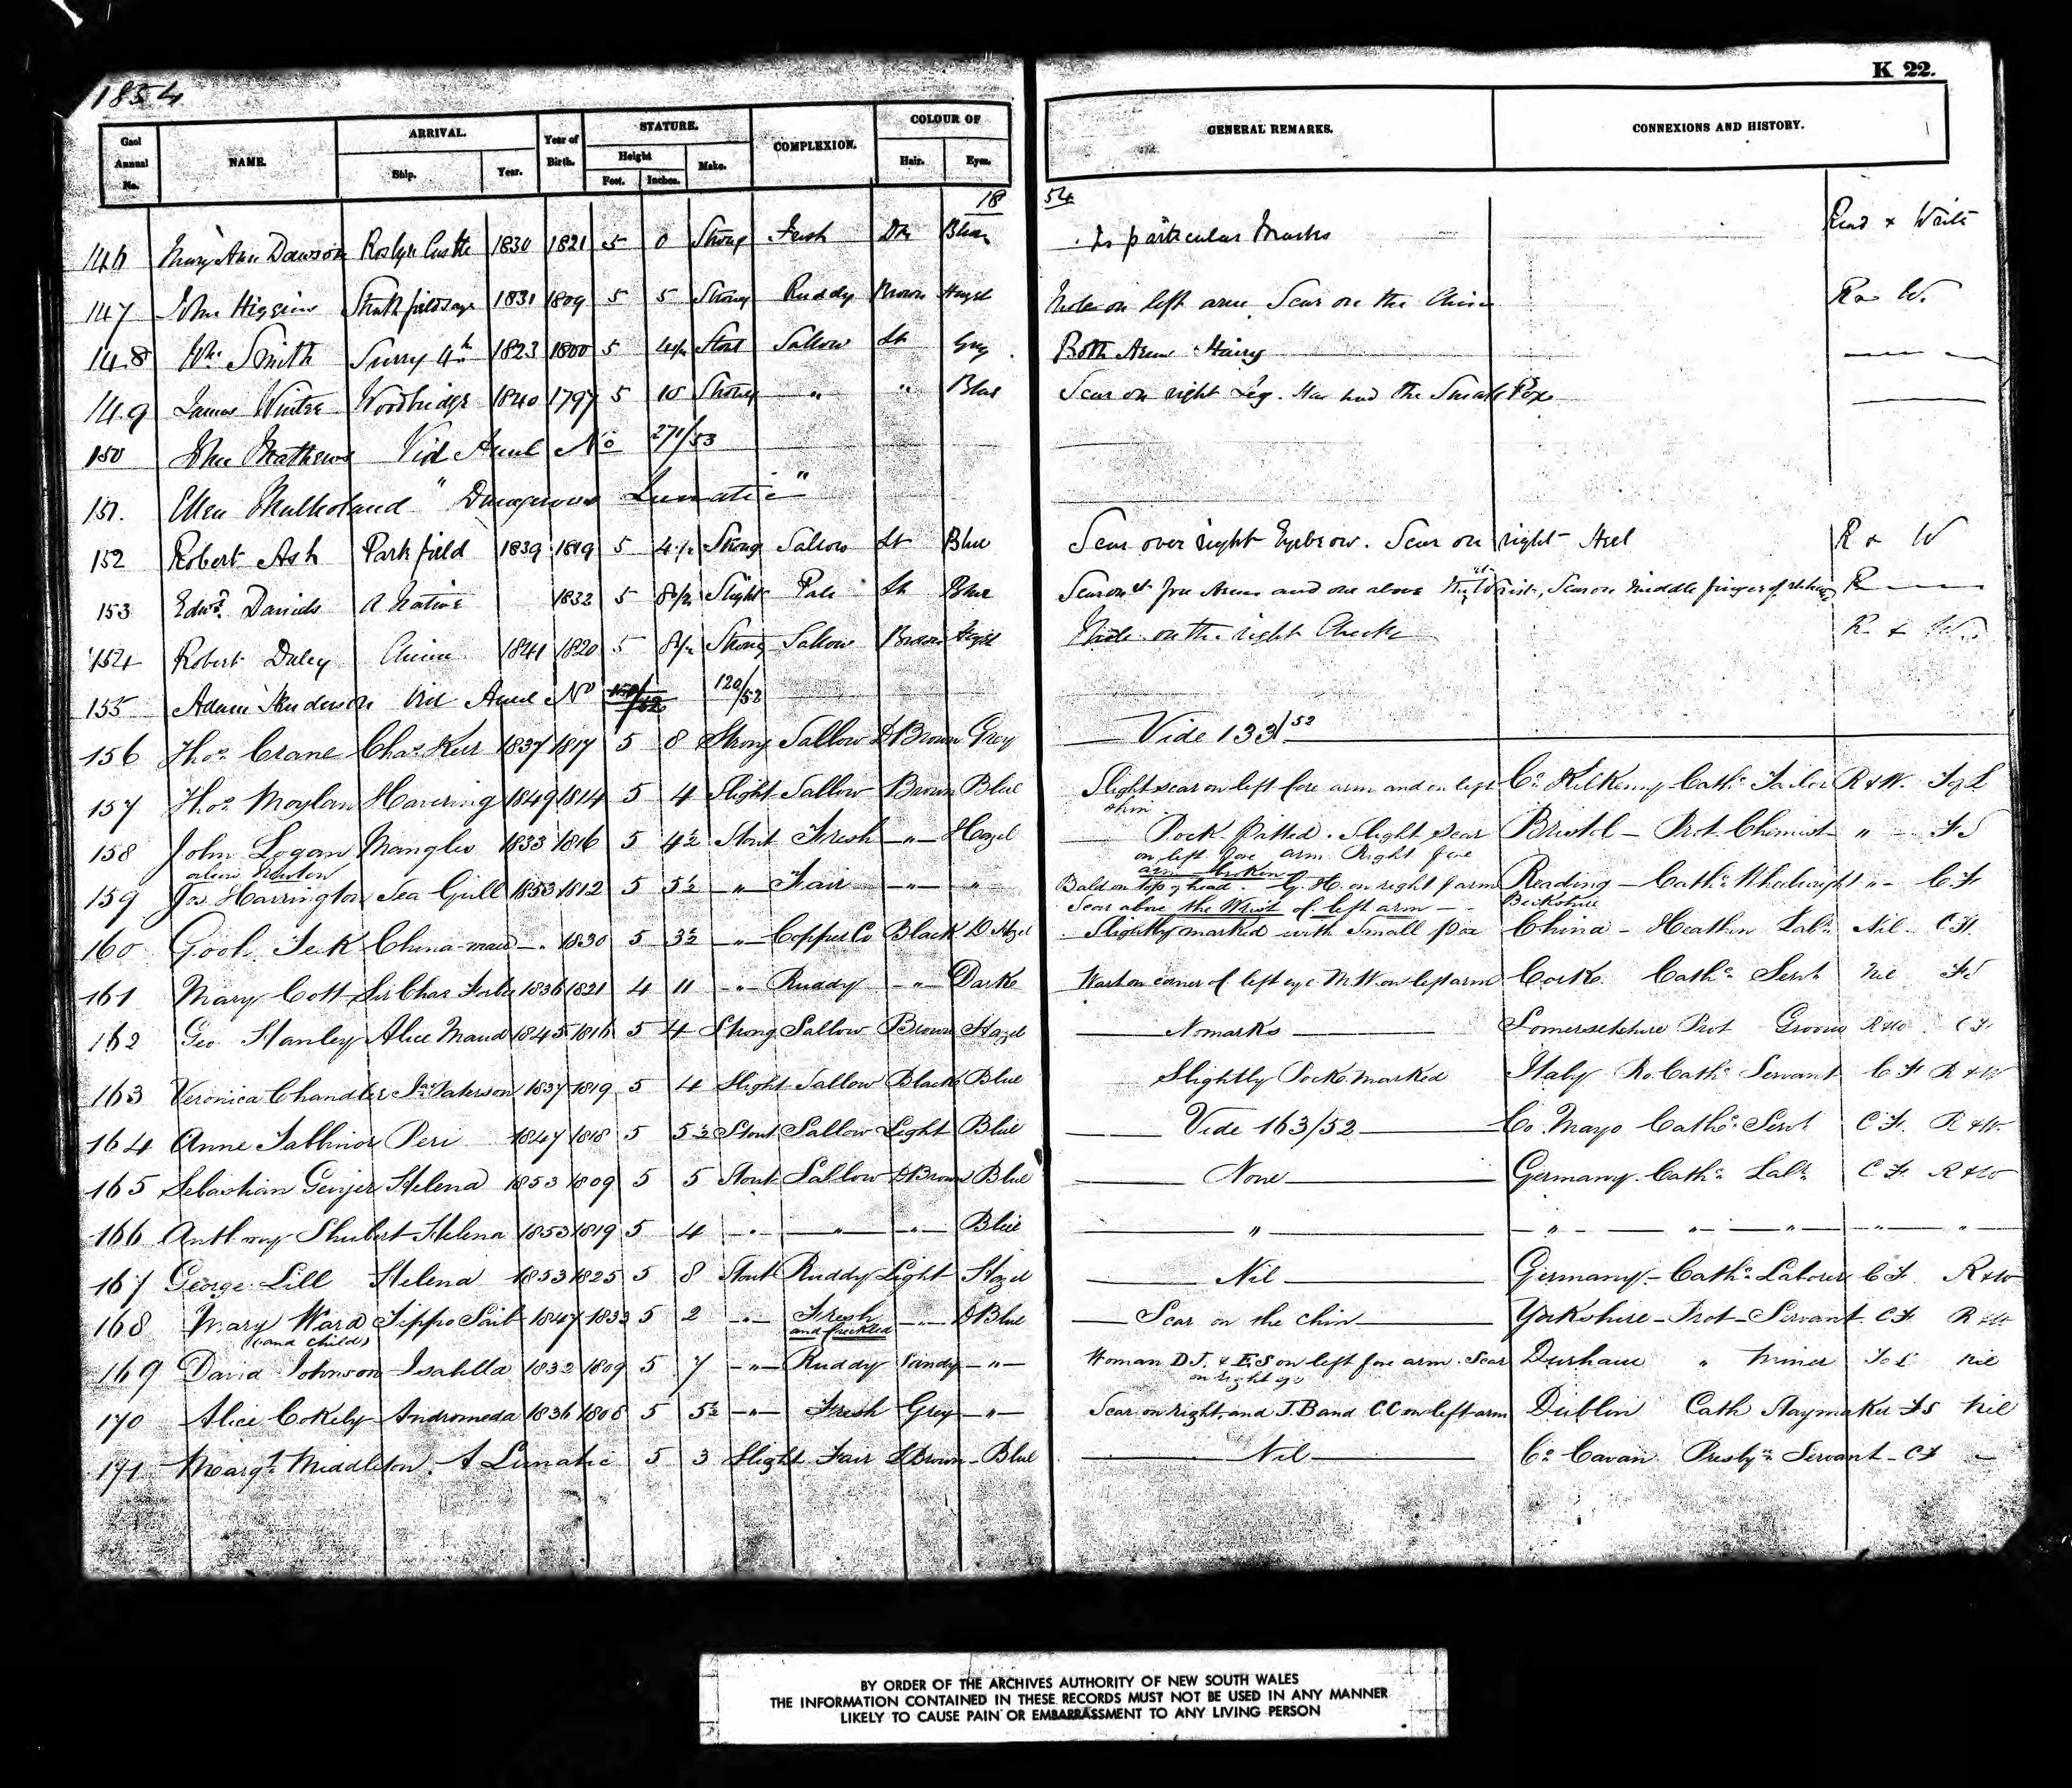 1854
K 22.
Gaol Annual No. NAME. ARRIVAL. Ship. Year. Year of Birth. STATURE. Height Feet. Inches. Make. COMPLEXION. COLOUR OF Hair. Eyes. GENERAL REMARKS. CONNEXIONS AND HISTORY.
18 54
146 Mary Ann Dawson Roslyn Castle 1830 1821 5 0 Strong Fresh Dk Blue No particular Marks Read & Write
147 John Higgins Strathfieldsaye 1831 1809 5 5 Strong Ruddy Brown Hazel Mole on left arm. Scar on the Chin R & W.
148 Wm Smith Surry 4th 1823 1800 5 4½ Stout Sallow Lt Grey Both Arms Hairy
149 James Winter Woodbridge 1840 1797 5 10 Strong " " Blue Scar on right Leg. Has had the Small Pox
150 John Mathews Vid Anul No 271/53
151. Ellen Mulholand "Dangerous Lunatic"
152 Robert Ash Parkfield 1839 1819 5 4½ Strong Sallow Lt Blue Scar over right Eyebrow. Scar on right Heel R & W
153 Edwd. Daniels A Native 1832 5 8½ Slight Pale Lt Blue Scar on fore Arm and one above the Wrist, Scar on Middle finger of R
154 Robert Daley China 1841 1820 5 8½ Strong Sallow Brown Hazel Mole on the right Cheek R & W
155 Adam Anderson Vid Anul No 120/52
156 Thos. Crane Chas. Kerr 1837 1817 5 8 Strong Sallow D Brown Grey Vide 133/52
157 Thos. Moylan Havering 1849 1814 5 4 Slight Sallow Brown Blue Slight scar on left fore arm and on left shin Co. Kilkenny Cathc. Tailor R & W. T of L
158 John Logan Mangles 1833 1816 5 4½ Stout Fresh " Hazel Pock Pitted. Slight scar on left fore arm Right fore arm broken Bristol - Prot. Chemist " F S
alias Newton
159 Jas. Harrington Sea Gull 1853 1812 5 5½ " Fair " " Bald on top of head. G. H. on right f arm Scar above the Wrist of left arm Reading - Cathc. Wheelwright " C. F
Berkshire
160 Gooh Teek China-man - 1830 5 3½ " Copper Co Black D Hazel Slightly marked with Small pox China - Heathen Labr. Nil C F.
161 Mary Cott Sir Chas Forbes 1836 1821 4 11 " Ruddy " Dark Wart on corner of left eye M. W. on left arm Cork. Cathc. Servt Nil F S
162 Geo Stanley Alice Maud 1845 1816 5 4 Strong Sallow Brown Hazel No marks Somersetshire Prot Groom R & W C F.
163 Veronica Chandler Jas. Paterson 1837 1819 5 4 Slight Sallow Black Blue Slightly Pock marked Italy Ro. Cathc. Servant C F R & W
164 Anne Tabbinor Peri 1847 1818 5 5½ Stout Sallow Light Blue Vide 163/52 Co. Mayo Cathc. Servt. C F. R & W.
165 Sebastian Geiger Helena 1853 1809 5 5 Stout Sallow D Brown Blue None Germany. Cathc. Labr. C F R & W
166 Anthony Shubert Helena 1853 1819 5 4 " " " Blue " " " " " "
167 George Lill Helena 1853 1825 5 8 Stout Ruddy Light Hazel Nil Germany. - Cathc. Laborer C F. R & W
168 Mary Ward Tippo Saib 1847 1833 5 2 " Fresh and freckled " D Blue Scar on the chin Yorkshire - Prot - Servant C F. R & W
(and child)
169 David Johnson Isabella 1832 1809 5 7 " Ruddy Sandy " Woman D J. & E S on left fore arm. Scar on right eye Durham " Miner T o L Nil
170 Alice Cokely Andromeda 1836 1808 5 5½ " Fresh Grey " Scar on right, and J. B and C C on left arm Dublin Cath Staymaker F S Nil
171 Margt. Middleton. A Lunatic 5 3 Slight Fair D Brown Blue Nil Co. Cavan Presbyn. Servant - C F -
BY ORDER OF THE ARCHIVES AUTHORITY OF NEW SOUTH WALES
THE INFORMATION CONTAINED IN THESE RECORDS MUST NOT BE USED IN ANY MANNER
LIKELY TO CAUSE PAIN OR EMBARRASSMENT TO ANY LIVING PERSON